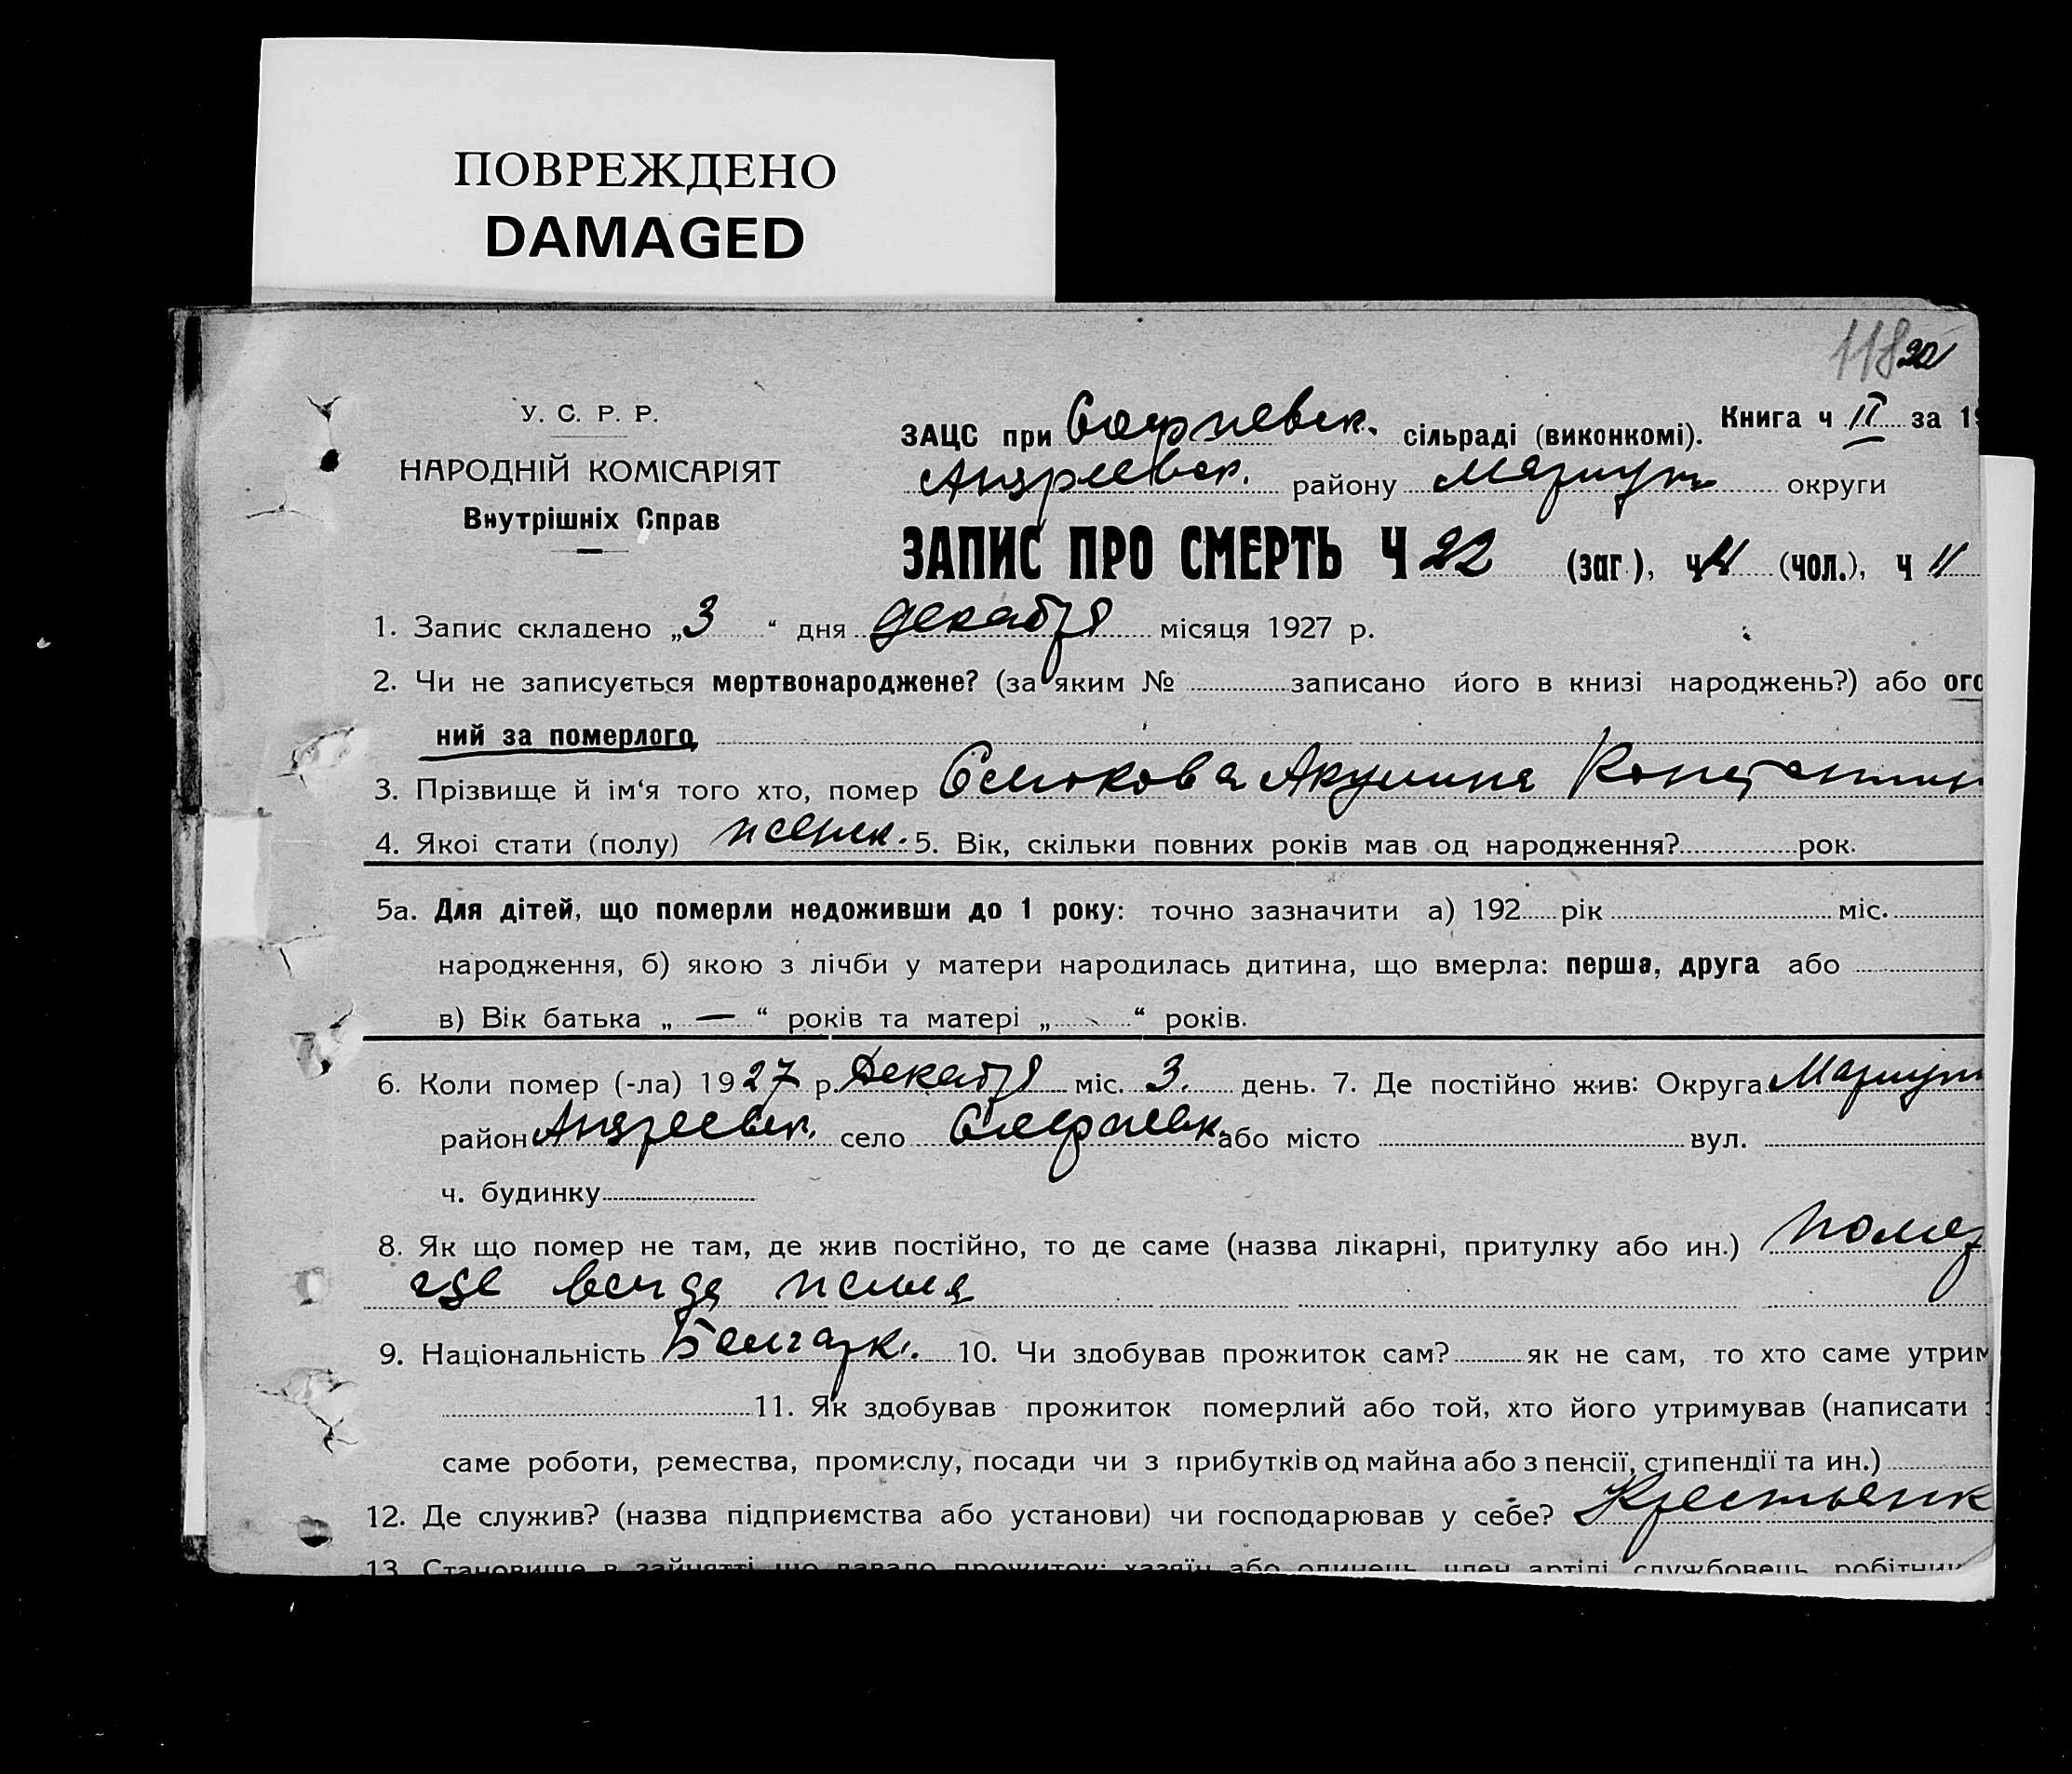 ПОВРЕЖДЕНО
DAMAGED
118 22
У. С. Р. Р.
НАРОДНІЙ КОМІСАРІЯТ
Внутрішніх Справ
ЗАЦС при Софиевск. сільраді (виконкомі). Книга ч II за 19
Андреевск. району Мариуп округи
ЗАПИС ПРО СМЕРТЬ Ч 22 (заг.), ч (чол.), ч 11
1. Запис складено „3“ дня декабря місяця 1927 р.
2. Чи не записується мертвонароджене? (за яким № записано його в книзі народжень?) або ого
ний за померлого
3. Прізвище й ім‘я того хто, помер Акулина Константин
4. Якої стати (полу) женск. 5. Вік, скільки повних років мав од народження? рок.
5а. Для дітей, що померли недоживши до 1 року: точно зазначити а) 192 рік міс.
народження, б) якою з лічби у матери народилась дитина, що вмерла: перша, друга або
в) Вік батька „ — “ років та матері „ “ років.
6. Коли помер (-ла) 1927 р. Декабря міс. 3. день. 7. Де постійно жив: Округа Мариуп
район Андреевск. село Софиевк. або місто вул.
ч. будинку
8. Як що помер не там, де жив постійно, то де саме (назва лікарні, притулку або ин.) помер
где всигда жила
9. Національність Болгарк. 10. Чи здобував прожиток сам? як не сам, то хто саме утрим
11. Як здобував прожиток померлий або той, хто його утримував (написати
саме роботи, ремества, промислу, посади чи з прибутків од майна або з пенсії, стипендії та ин.)
12. Де служив? (назва підприємства або установи) чи господарював у себе? Крестьянк
13. Становище в зайнятті що давало прожиток: хазяїн або одинець, член артілі службовець, робітник